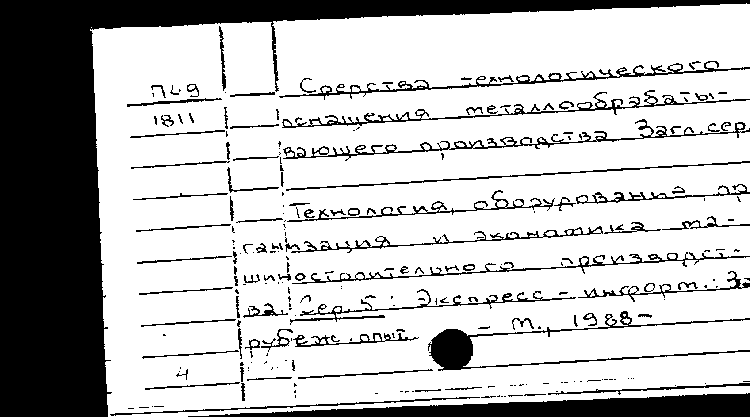 П49
1811
Средства технологического
оснащения металлообрабаты-
вающего производства Загл.сер.
Технология, оборудование, ор
ганизация и экономика ма-
шиностроительного производст-
ва. Сер. 5 : Экспресс - информ. : За
рубеж. опыт. - М., 1988-
4